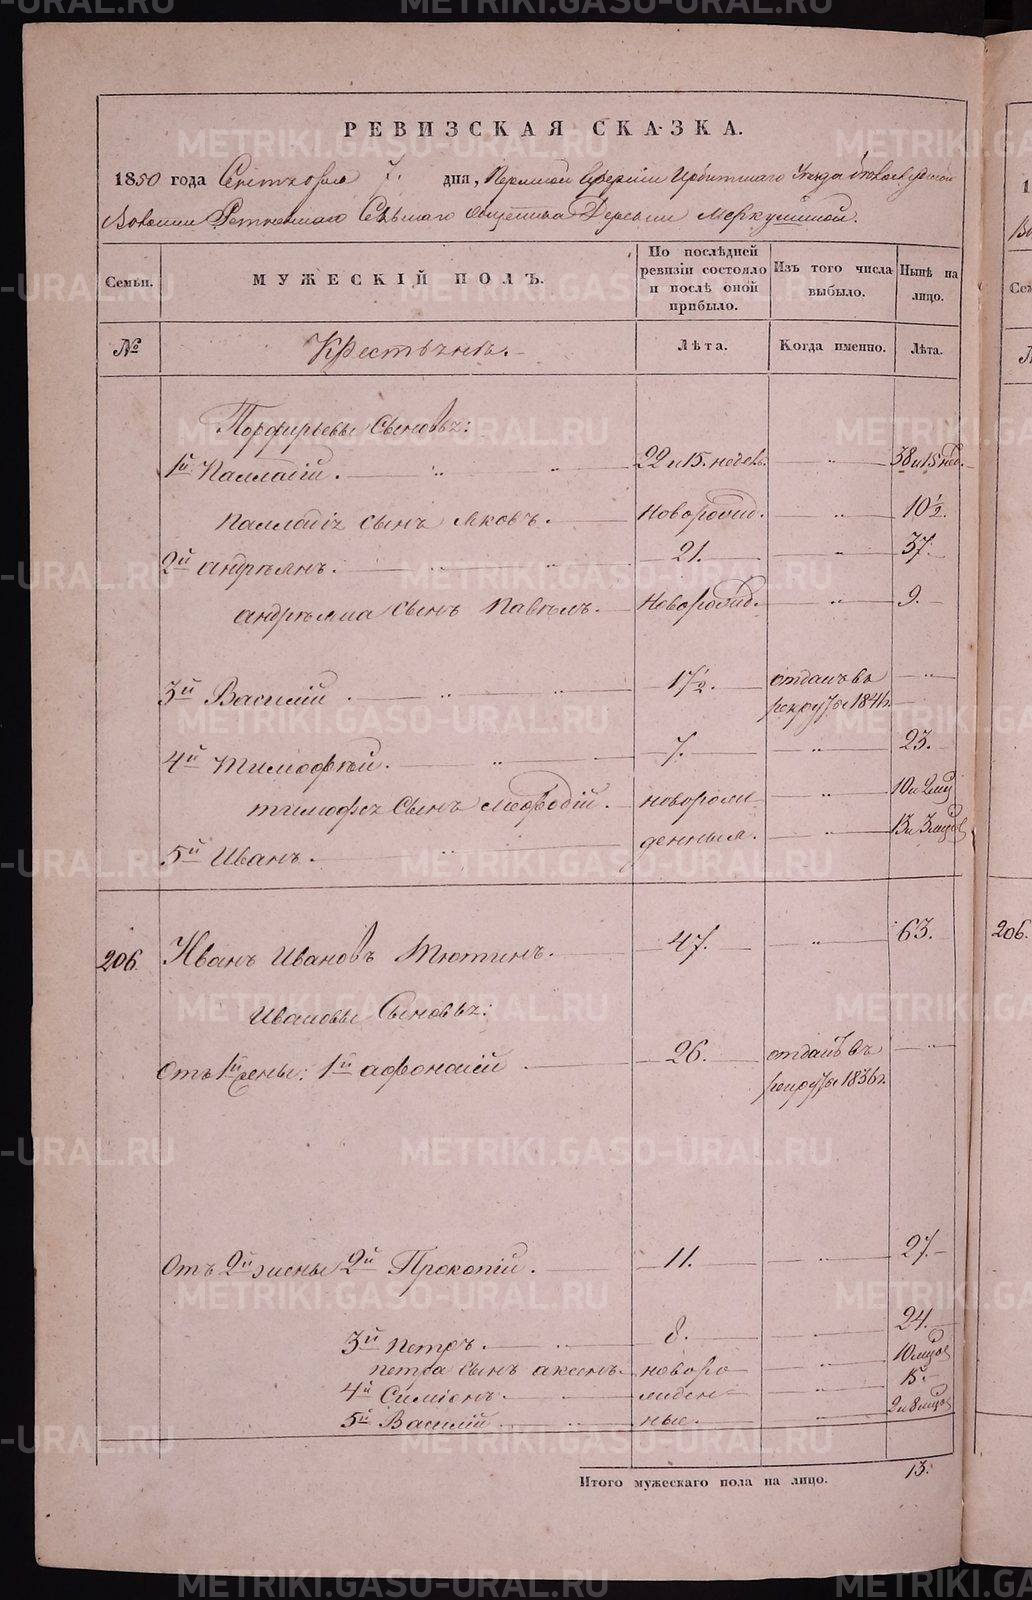 РЕВИЗСКАЯ СКАЗКА.
1850 года Сентября 7. дня, Пермской Губернии Ирбитскаго Уезда
Волости Сельскаго общества Деревни Меркушиной.
Семьи. МУЖЕСКІЙ ПОЛЪ. По послѣдней ревизіи состояло и послѣ оной прибыло. Изъ того числа выбыло. Нынѣ на лицо.
№ Крестьяне. Лѣта. Когда именно. Лѣта.
Порфирьевы Сыновья:
1й Палладій. 22 и 15. недель. 38 и 15 нед.
Палладія сынъ Яковъ. Новорожд. 10½.
2й андреянъ. 21. 37.
андреяна сынъ Павелъ. Новорожд. 9.
3й Василій 17½. отданъ въ рекруты 1841г.
4й Тимофей. 7. 23.
тимофея сынъ мефодій. новорожденныя. 10 и 2 мц
5й Иванъ. 13 и 3 мцов
206. Иванъ Ивановъ Тютинъ. 47. 63.
Ивановы Сыновья:
Отъ 1й жены: 1й афонасій 26. отданъ въ рекруты 1836г.
Отъ 2й жены 2й Прокопій. 11. 27.
3й петръ. 8. 24.
петра сынъ новорожденные. 10 мцов
4й Симіонъ. 15.
5й Василій 2 и 8 мцов
Итого мужескаго пола на лицо. 13.
1
Во
Сем
№
206.
METRIKI.GASO-URAL.RU